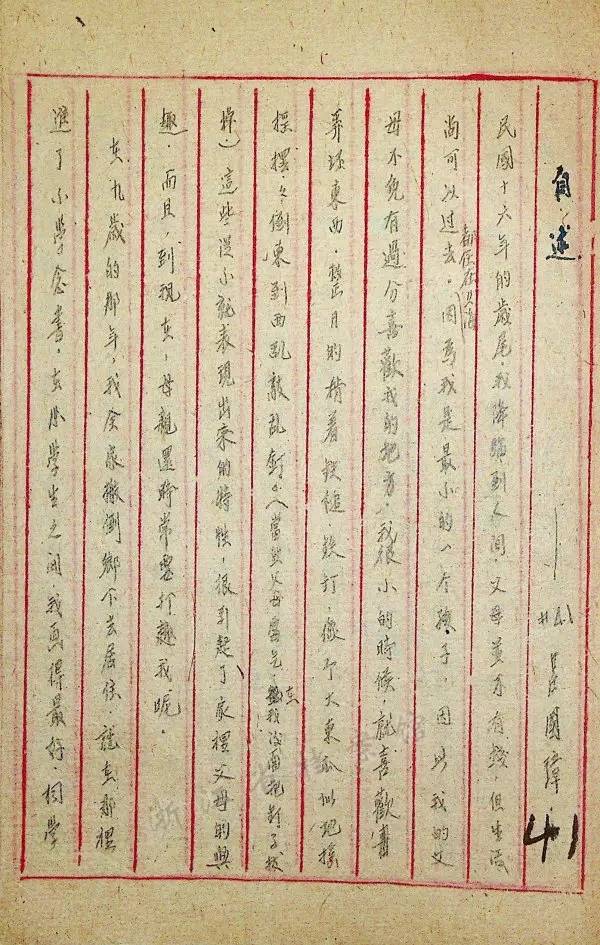 自述
#41 吴國瑋
41
民國十六年的歲尾我降臨到人间，父母並不有錢，但生活
都住在上海
尚可以过去。因爲我是最小的一个孩子，因以我的父
母不免有過分喜歡我的地方，我很小的時候，就喜歡書
弄坭東西，整月的揹着 鎚鉄打，像个大東瓜似地搖
摇擺擺，東到西乱敲乱釘，人當 父母 在我後面把釘子拔
掉），這些從小就表現出來的特性，很引起了家裡父母的興
趣，而且，到现在，母親還時常要打趣我呢。
在九歲的那年，我全家搬到鄉下去居住，就在那裡
進了小學念書，在小學生之间，我画得最好，同學
浙 省 館